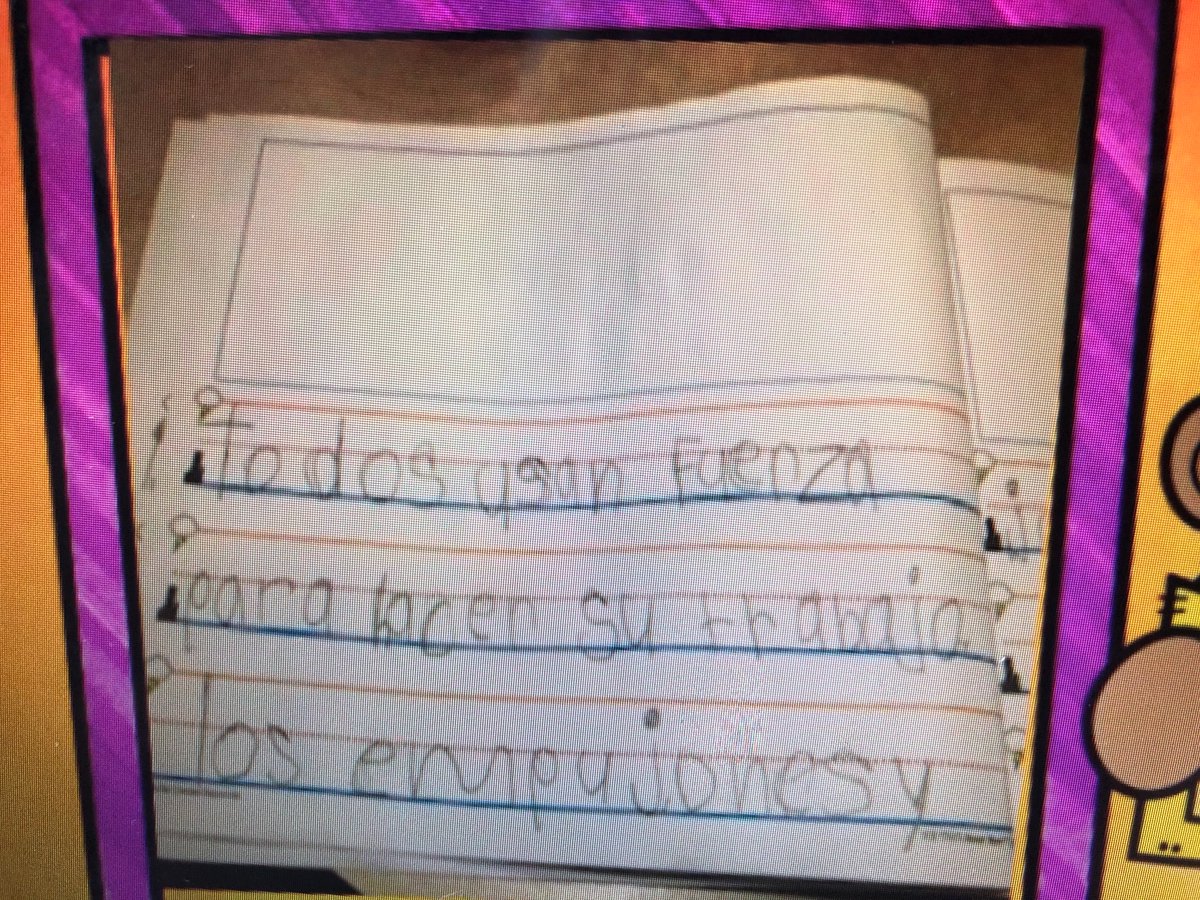 Todos usan Fuerza
para hacer su trabajo
los empujones y